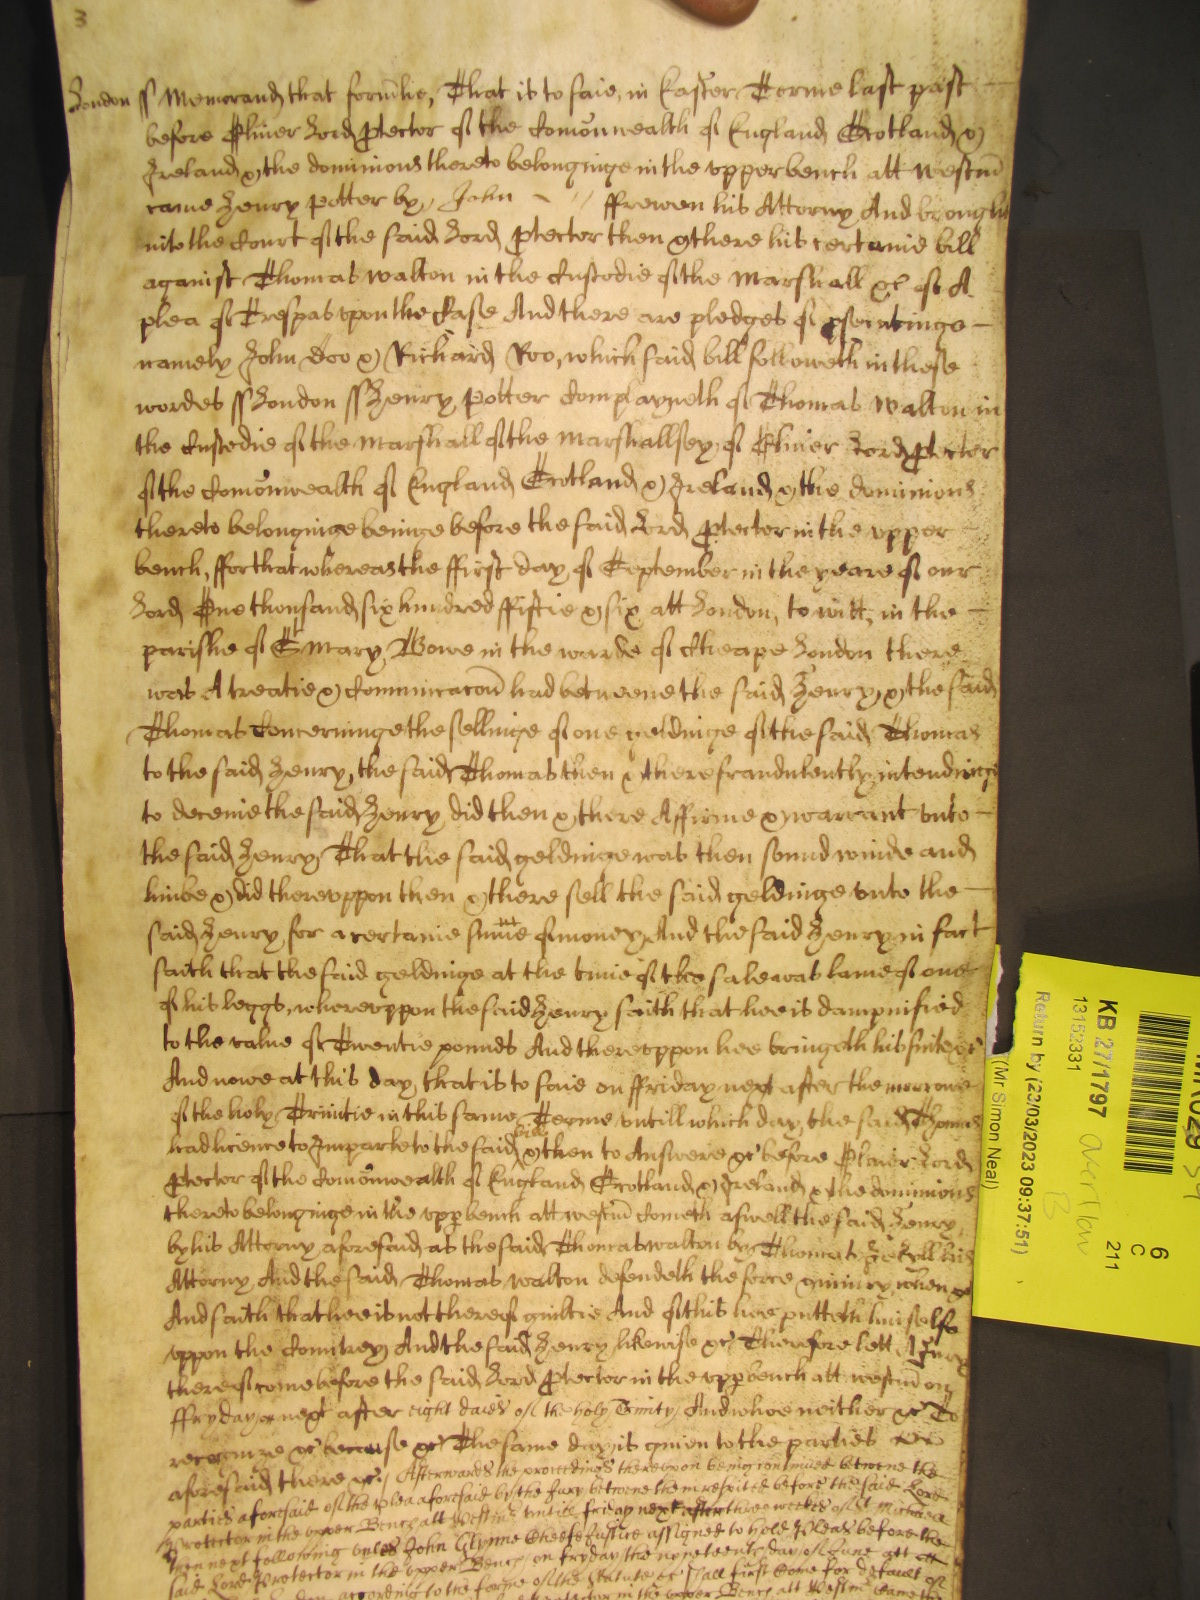 3
London ss Memorand that formlie, That is to saie, in Easter Terme last past
before Oliver Lord Ptector of the Comonwealth of England Scotland &
Ireland & the dominions thereto belonginge in the upper bench att Westm
came Henry Potter by John ffrewen his Attorny And brought
into the Court of the said Lord Ptector then & there his certaine bill
against Thomas Walton in the Custodie of the Marshall &c of A
plea of Trespas upon the Case And there are pledges of psecutinge
namely John Doo & Richard Roo, which said bill followeth in these
wordes ss London ss Henry Potter Complayneth of Thomas Walton in
the Custodie of the Marshall of the Marshallsey of Oliver Lord Ptector
of the Comonwealth of England Scotland & Ireland & the dominions
thereto belonginge beinge before the said Lord Ptector in the upper
bench, ffor that whereas the ffirst day of September in the yeare of our
Lord One thousand six hundred ffiftie & six att London, to witt, in the
parishe of St Mary Bowe in the warde of Cheape London there
was A treatie & Communicacon had betweene the said Henry & the said
Thomas Concerninge the sellinge of one geldinge of the said Thomas
to the said Henry, the said Thomas then & there fraudulently intendinge
to deceive the said Henry did then & there Affirme & warrant unto
the said Henry That the said geldinge was then sound winde and
limbe & did thereuppon then & there sell the said geldinge unto the
said Henry for a certaine sume of money, And the said Henry in fact
saith that the said geldinge at the time of the sale was lame of one
of his leggs, whereuppon the said Henry saith that hee is dampnified
to the value of Twentie pounds And thereuppon hee bringeth his suite &c
And nowe at this day, that is to saie on ffriday next after the morrowe
of the holy Trinitie in this same Terme untill which day the said Thomas
had licence to Imparle to the said bill & then to Answere &c before Oliver Lord
Ptector of the Comonwealth of England Scotland & Ireland & the dominions
thereto belonginge in the upp bench att westm Cometh aswell the said Henry
by his Attorny aforesaid as the said Thomas walton by Thomas Jekyll his
Attorny And the said Thomas walton defendeth the force & iniury when &c
And saith that hee is not thereof guiltie And of this hee putteth himselfe
uppon the Countrey And the said Henry likewise &c Therefore lett A Jury
thereof come before the said Lord Ptector in the upp bench att westm on
ffryday next after eight daies of the holy Trinity, And whoe neither &c To
recognize &c because &c The same day is given to the parties
aforesaid there &c. Afterwards the proceedings thereupon being continued betwene the
parties aforesaid of the plea aforesaid by the Jury betwene them respited before the said Lord
Protector in the upper Bench att Westm untill friday next after three weekes of St Michael
then next following unles John Glynne Cheefe Justice assigned to hold Pleas before the
said Lord Protector in the upper Bench on fryday the nyneteenth day of June att
shall first Come for default of
according to the forme of the Statute &c
in the upper Bench att Westm Came the
KB 27/1797
13152331
Return by (22/03/2023 09:37:51)
(Mr Simon Neal)
6
C
211
overflow
B